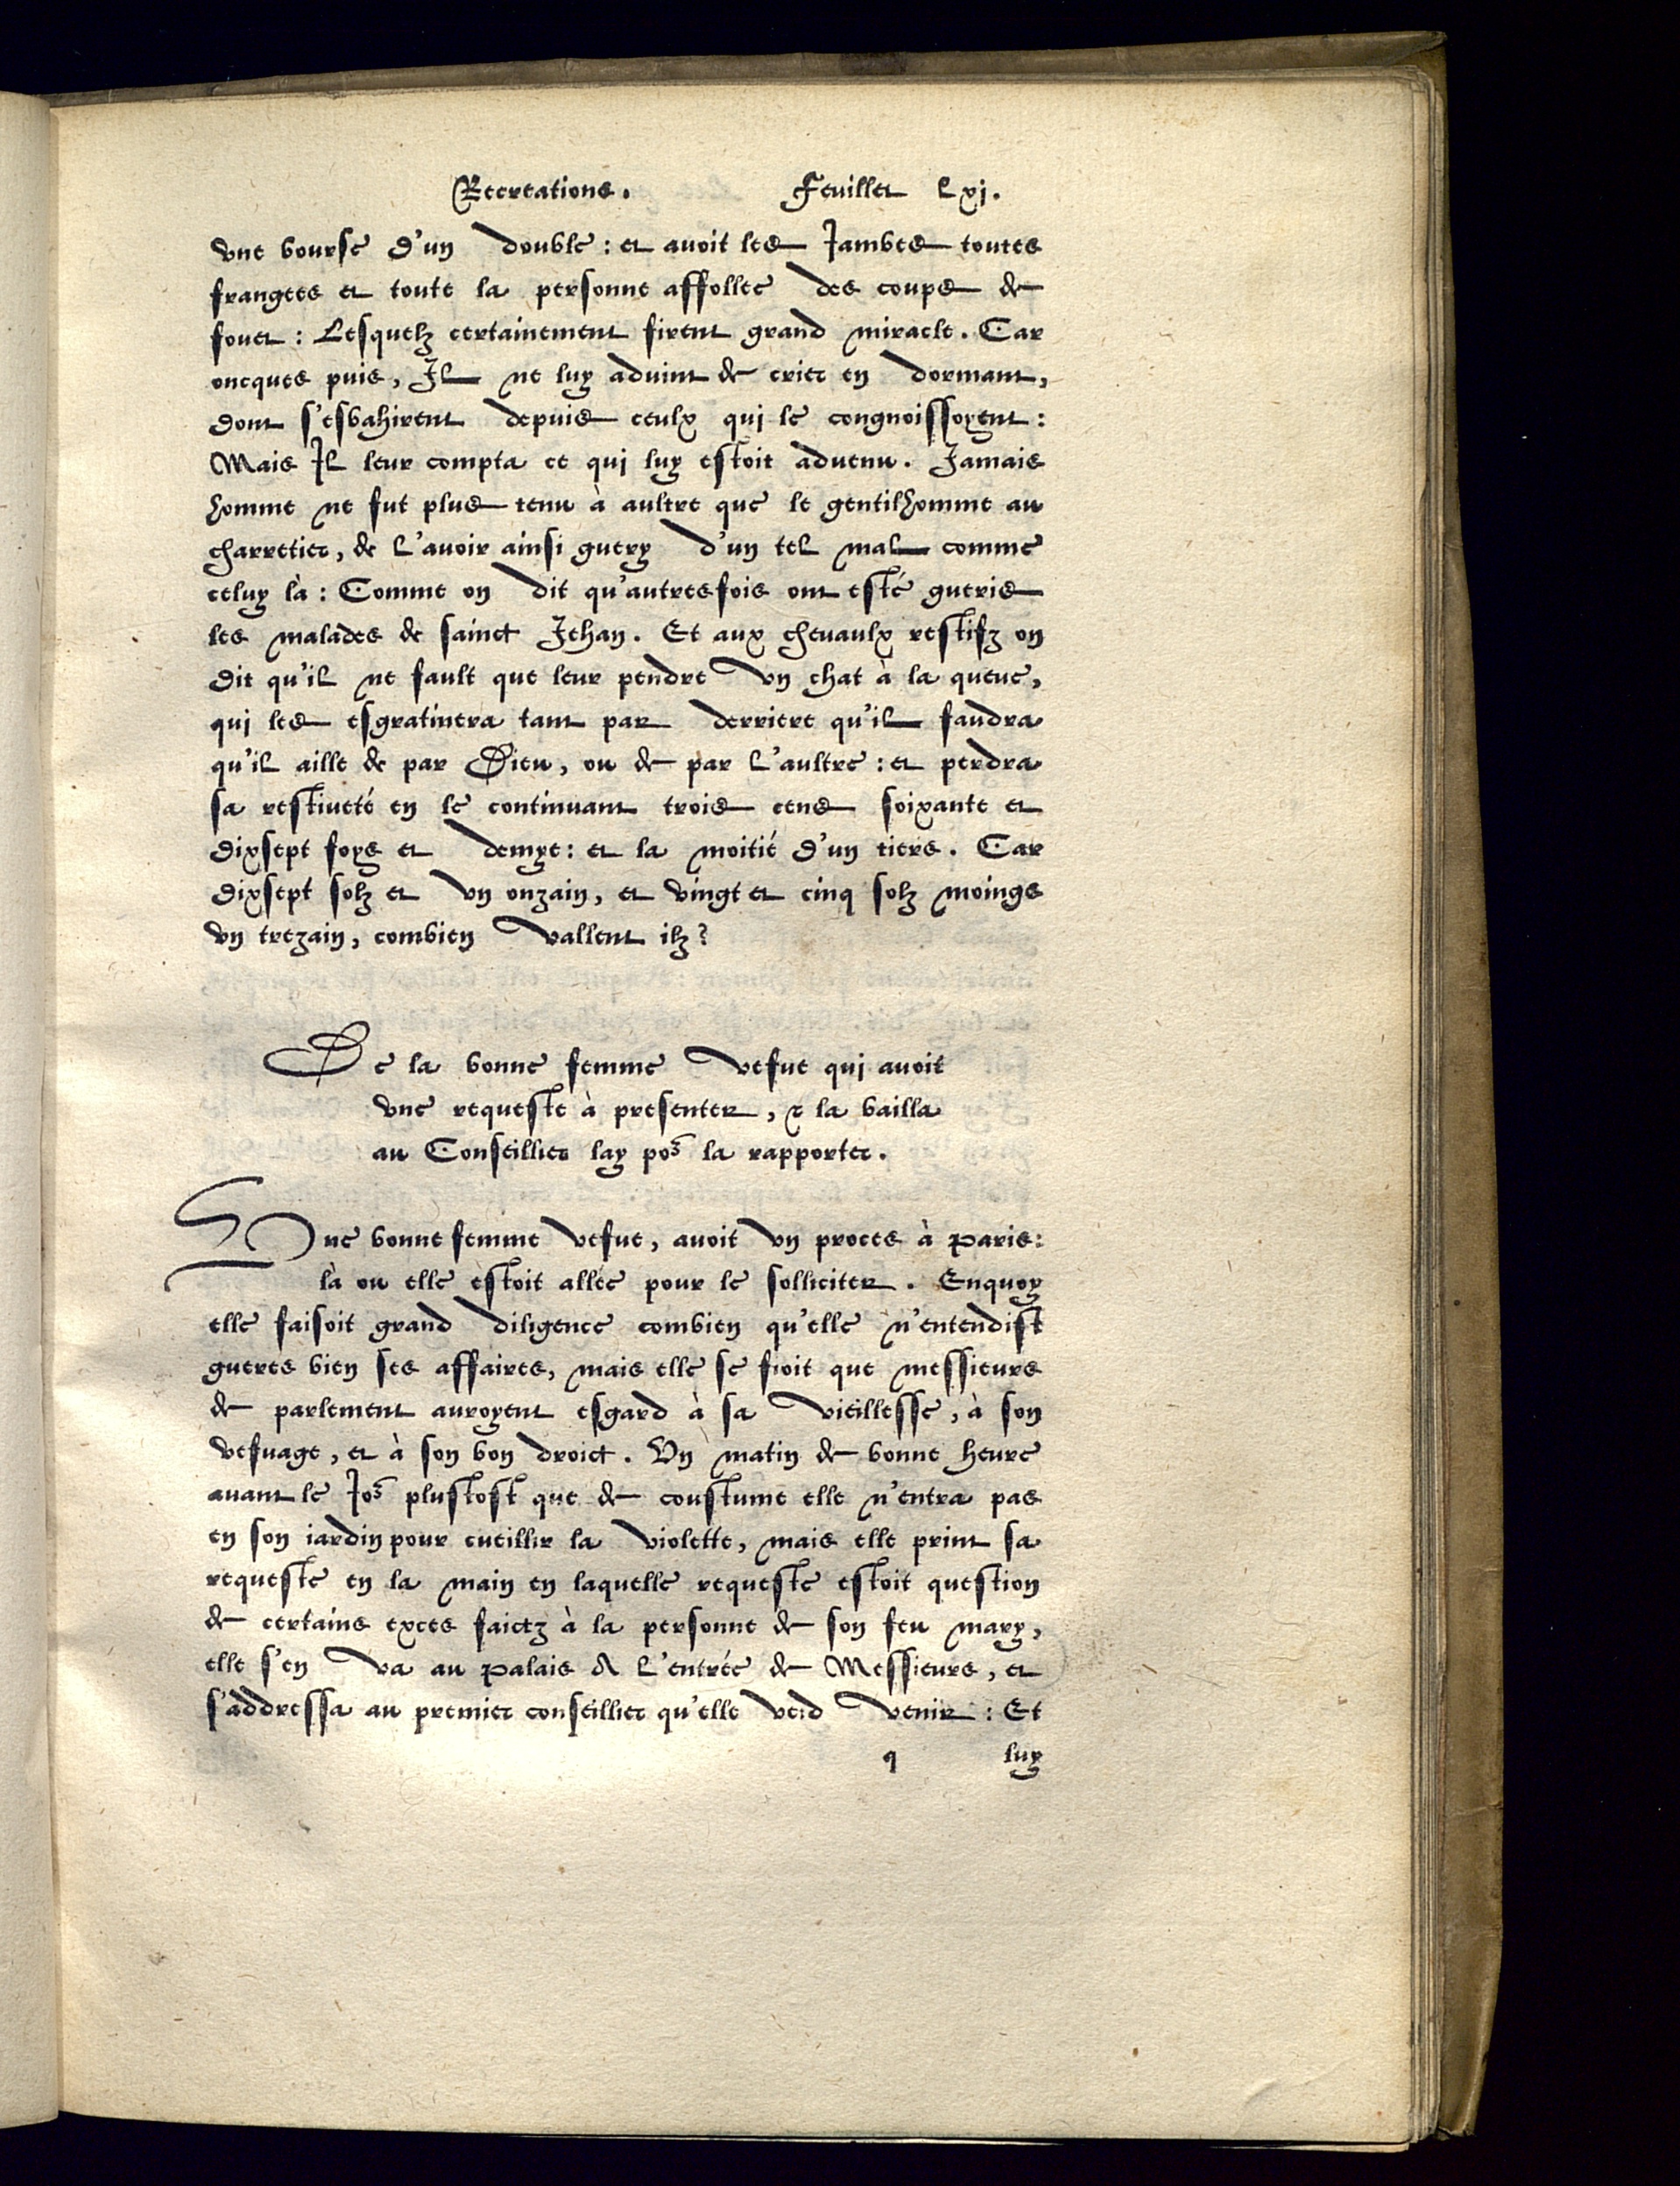 Recreations. Feuillet lxj.
vne bourse d'un double : et auoit les Jambes toutes
frangees et toute la personne affollee des coups de
fouet : Lesquelz certainement firent grand miracle. Car
oncques puis, Jl ne luy aduint de crier en dormant,
dont s'esbahirent depuis ceulx qui le congnoissoyent :
Mais Jl leur compta ce qui luy estoit aduenu. Jamais
homme ne fut plus tenu à aultre que le gentilhomme au
charretier, de l'auoir ainsi guery d'un tel mal comme
celuy là : Comme on dit qu'autresfois ont esté gueris
les malades de sainct Jehan. Et aux cheuaulx restifz on
dit qu'il ne fault que leur pendre vn chat à la queue,
qui les esgratinera tant par derriere qu'il faudra
qu'il aille de par Dieu, ou de par l'aultre : et perdra
sa restiueté en le continuant trois cens soixante et
dixsept foys et demye : et la moitié d'un tiers. Car
dixsept solz et vn onzain, et vingt et cinq solz moings
vn trezain, combien vallent ilz ?
De la bonne femme vefue qui auoit
vne requeste à presenter, & la bailla
au Conseillier lay pos la rapporter.
Vne bonne femme vefue, auoit vn proces à Paris :
là ou elle estoit allée pour le solliciter. Enquoy
elle faisoit grand diligence combien qu'elle n'entendist
gueres bien ses affaires, mais elle se fioit que messieurs
de parlement auroyent esgard à sa vieillesse, à son
vefuage, et à son bon droict. Vn matin de bonne heure
auant le Jos plustost que de coustume elle n'entra pas
en son iardin pour cueillir la violette, mais elle print sa
requeste en la main en laquelle requeste estoit question
de certains exces faictz à la personne de son feu mary,
elle s'en va au Palais A l'entrée de Messieurs, et
s'addressa au premier conseillier qu'elle veid venir : Et
q luy